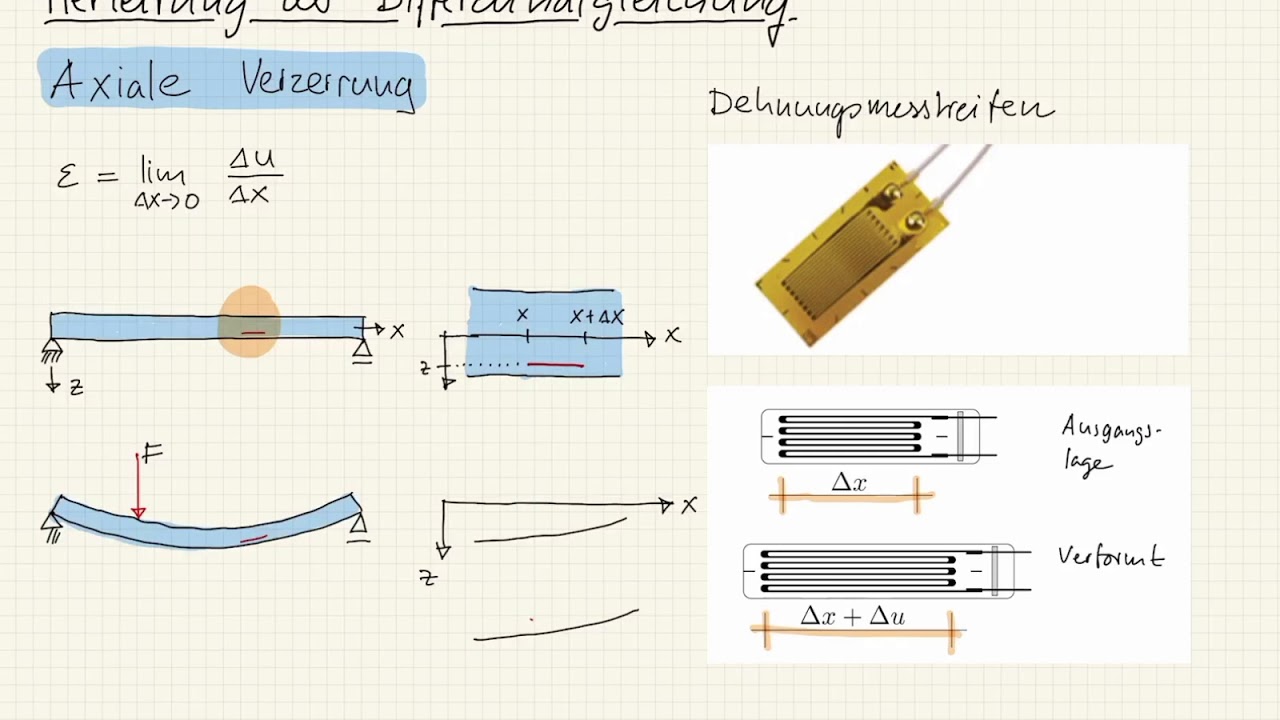 Herleitung der Differentialgleichung
Axiale Verzerrung
ε = lim Δu
Δx→0 Δx
Dehnungsmessstreifen
x
z
x x+Δx x
z
F
x
z
Ausgangs-
lage
Δx
Verformt
Δx + Δu